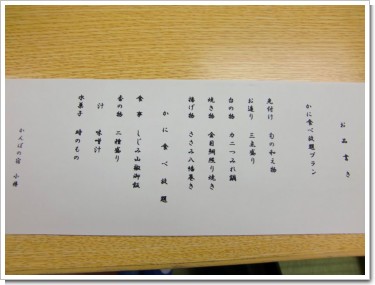 お品書き
かに食べ放題プラン
先付け 旬の和え物
お造り 三点盛り
台の物 カニつみれ鍋
焼き物 金目鯛照り焼き
揚げ物 ささみ八幡巻き
かに食べ放題
食事 しじみ山椒御飯
香の物 二種盛り
汁 味噌汁
水菓子 時のもの
かんぽの宿